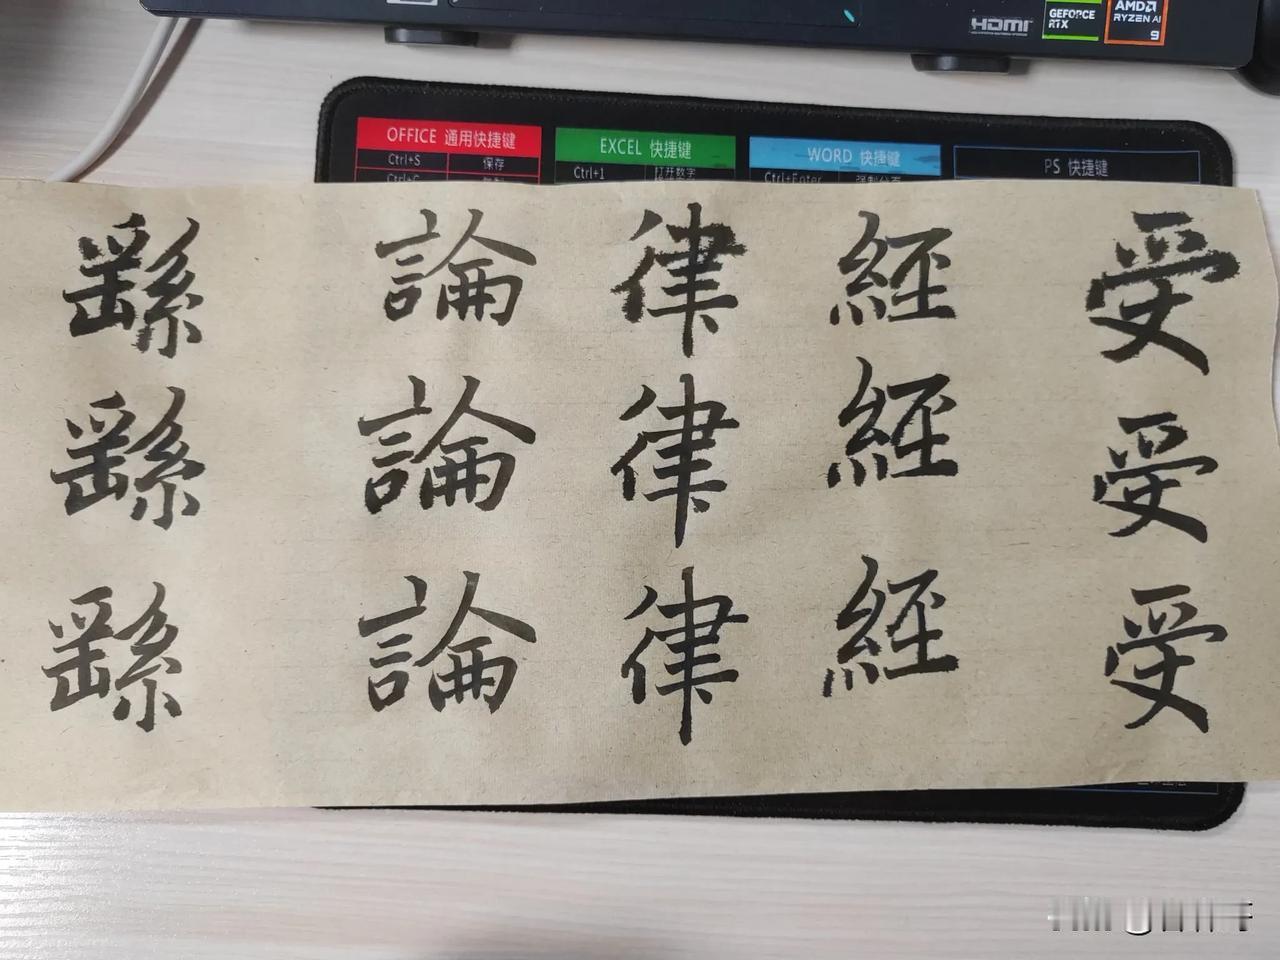 HDMI
GEFORCE
RTX
AMD
RYZEN AI
9
OFFICE 通用快捷键
Ctrl+S 保存
EXCEL 快捷键
Ctrl+1 打开数字
WORD 快捷键
Ctrl+Enter
PS 快捷键
受受受
經經經
律律律
論論論
繇繇繇